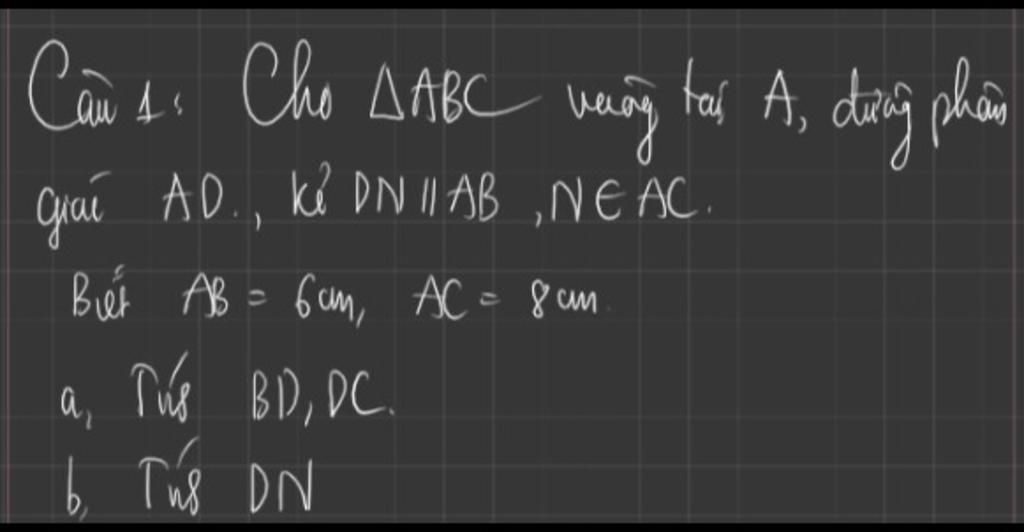 Câu 1: Cho ΔABC vuông tại A, đường phân
giác AD., kẻ DN // AB, N ∈ AC.
Biết AB = 6cm, AC = 8cm.
a, Tính BD, DC.
b, Tính DN